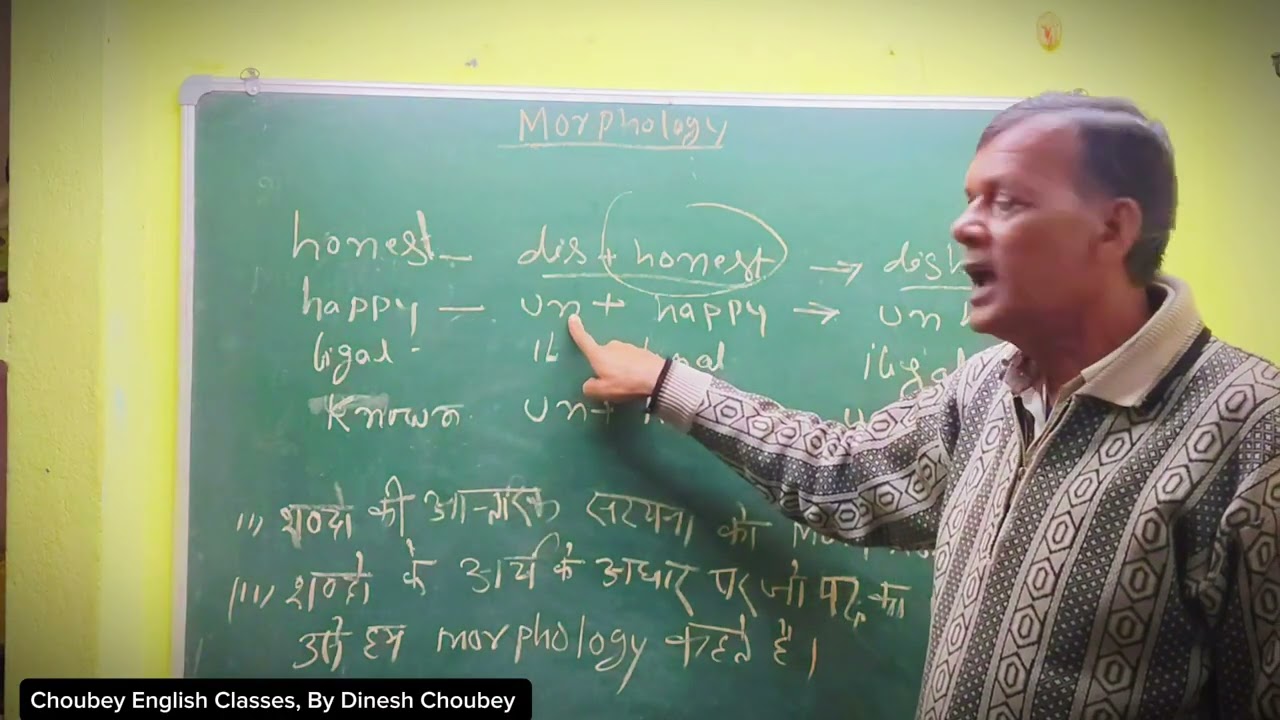 Morphology
honest — dis + honest → dish
happy — un + happy → un h
ligal - il ligal
Known un +
(i) शब्दो की आन्तरिक संरचना को Mor
(ii) शब्दो के अर्थ के आधार पर जो पद का
उसे हम morphology कहते है।
Choubey English Classes, By Dinesh Choubey